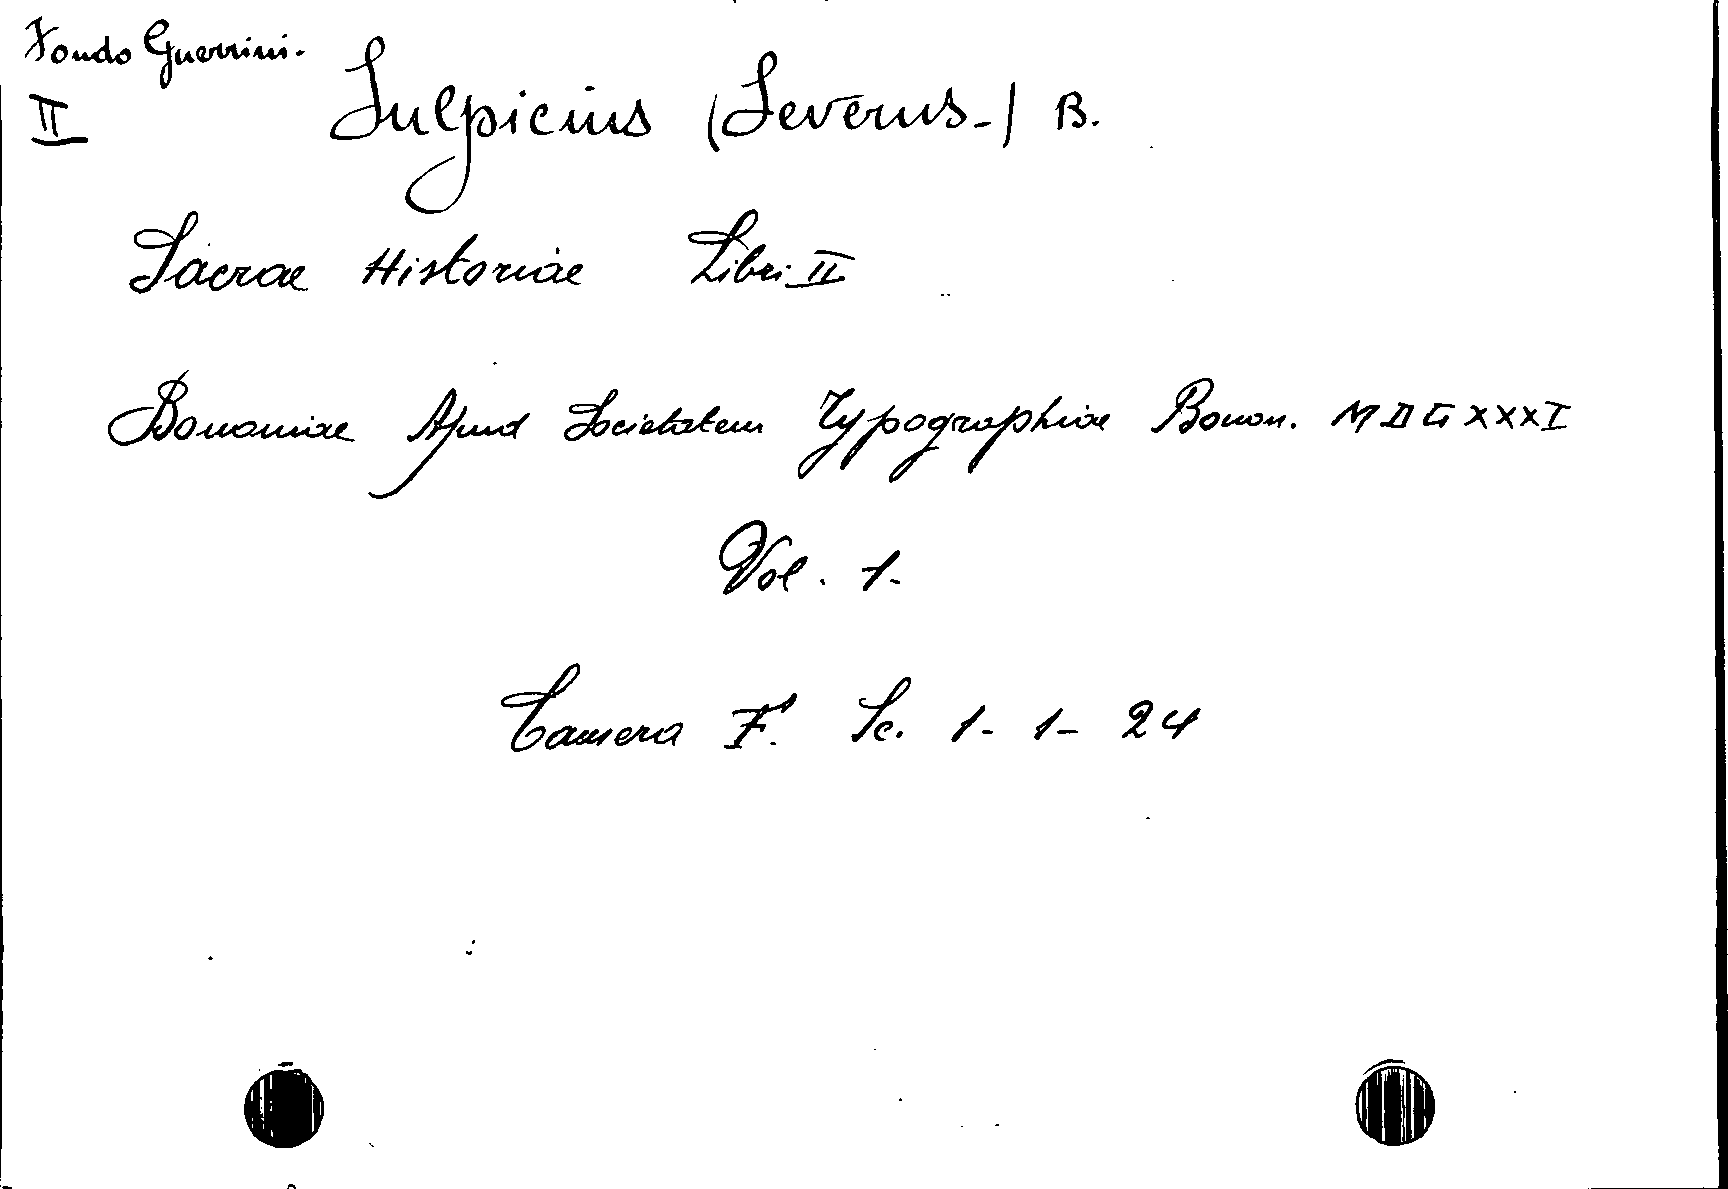 Fondo Guerrini.
II
Sulpicius (Severus-) B.
Sacrae Historiae Libri II
Bononiae Apud Societatem Typographiae Bonon. MDCXXXI
Vol. 1-
Camera F. Sc. 1- 1- 24